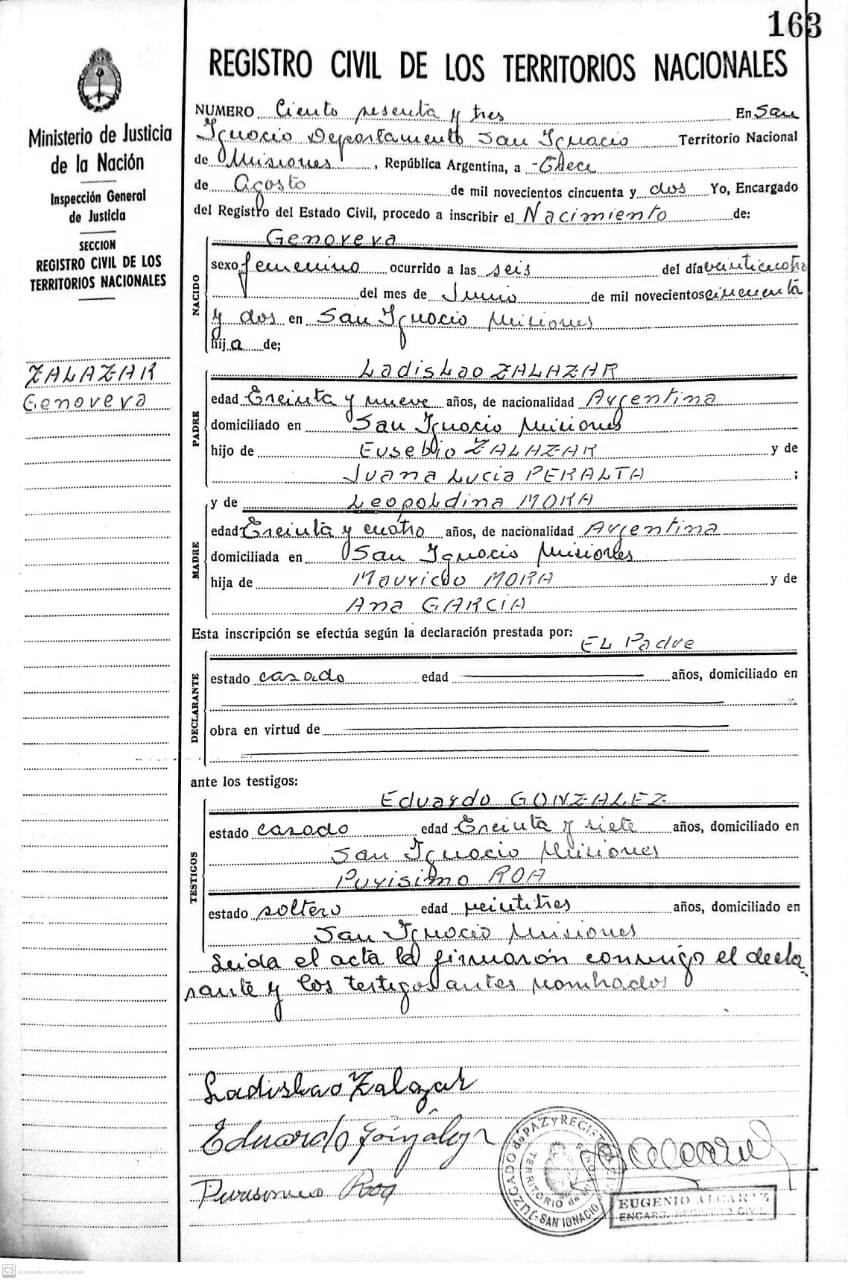 163
REGISTRO CIVIL DE LOS TERRITORIOS NACIONALES
Ministerio de Justicia
de la Nación
Inspección General
de Justicia
SECCION
REGISTRO CIVIL DE LOS
TERRITORIOS NACIONALES
ZALAZAR
Genoveva
NUMERO Ciento sesenta y tres En San
Ignacio Departamento San Ignacio Territorio Nacional
de Misiones, República Argentina, a Trece
de Agosto de mil novecientos cincuenta y dos Yo, Encargado
del Registro del Estado Civil, procedo a inscribir el Nacimiento de:
NACIDO
Genoveva
sexo femenino ocurrido a las seis del día veinticuatro
del mes de Junio de mil novecientos cincuenta
y dos en San Ignacio Misiones
hija de:
PADRE
Ladislao ZALAZAR
edad Treinta y nueve años, de nacionalidad Argentina
domiciliado en San Ignacio Misiones
hijo de Eusebio ZALAZAR y de
Juana Lucia PERALTA ;
y de Leopoldina MORA
MADRE
edad Treinta y cuatro años, de nacionalidad Argentina
domiciliada en San Ignacio Misiones
hija de Mauricio MORA y de
Ana GARCIA
Esta inscripción se efectúa según la declaración prestada por: EL Padre
DECLARANTE
estado casado edad años, domiciliado en
obra en virtud de
ante los testigos:
TESTIGOS
Eduardo GONZALEZ
estado casado edad Treinta y siete años, domiciliado en
San Ignacio Misiones
Purisimo ROA
estado soltero edad veintitres años, domiciliado en
San Ignacio Misiones
Leida el acta la firmarón conmigo el decla-
rante y los testigos antes nombrados
Ladislao Zalazar
Eduardo González
Roa
JUZGADO de PAZ Y REGISTRO
TERRITORIO de MISIONES
SAN IGNACIO
EUGENIO ALCARAZ
CS Escaneado con CamScanner